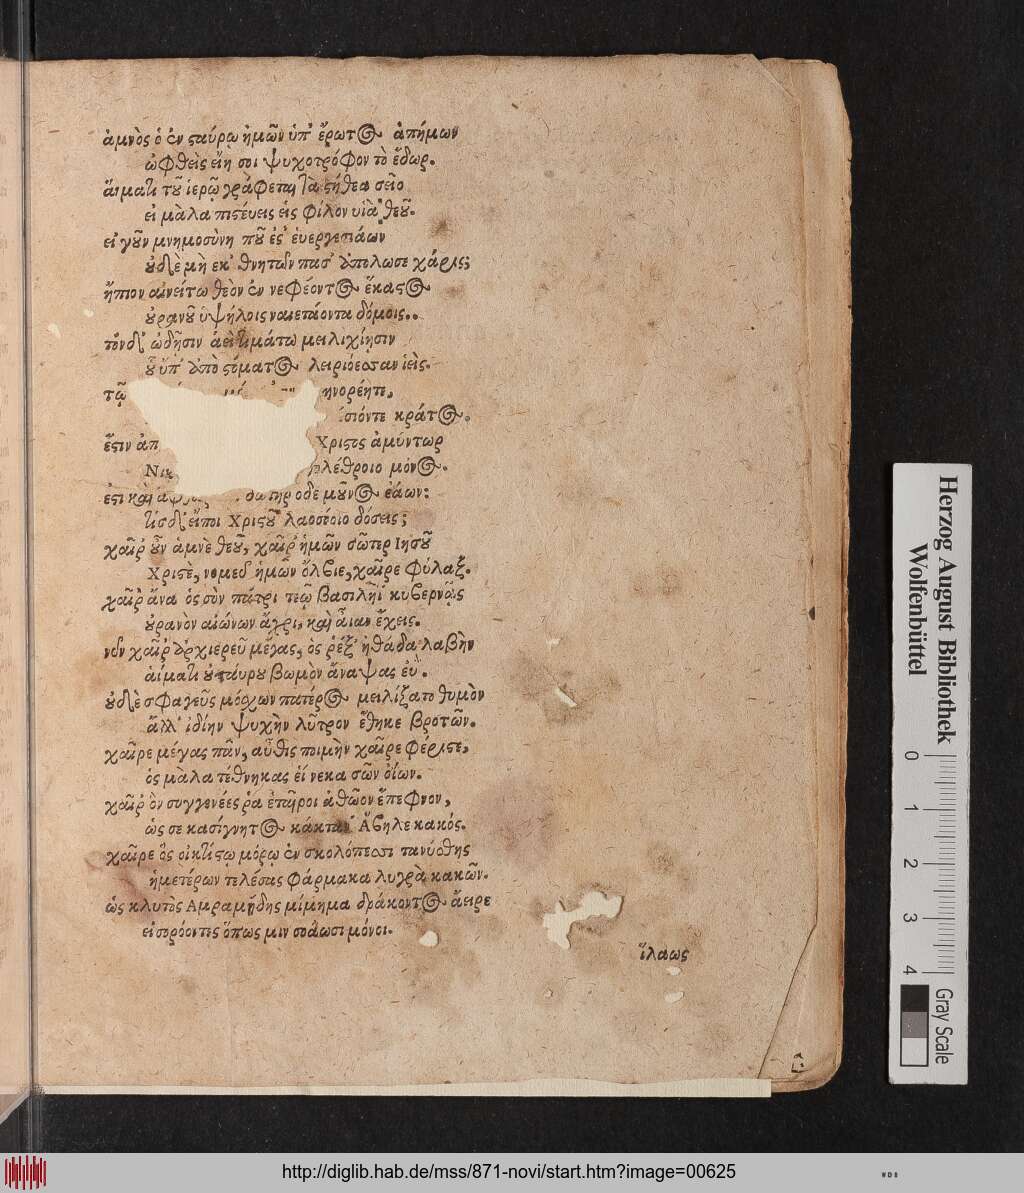 ἀμνὸς ὁ ἐν σαύρῳ ἡμῶν ὑπ' ἔρωτος ἀπήμων
ὠφθεὶς εἴη σοι ψυχοτρόφον τὸ ἔδωρ.
αἵματι τοῦ ἱεροῦ γράφεται τὰ στήθεα σεῖο
εἰ μάλα πιστεύεις εἰς φίλον υἷα θεοῦ.
εἰ γοῦν μνημοσύνη ποῦ ἐς' ἐυεργεσιάων
οὐδὲ μὴ εκ' θνητῶν πασ' ἀπόλωσε χάρις;
ἤπιον αἰνείτω θεὸν ἐν νεφέοντος ἕκαστος
οὐρανοῦ ὑψήλοις ναιετάοντα δόμοις..
τόνδ' ὠδῆσιν ἀεὶ τιμάτω μειλιχίῃσιν
ἀπὸ στόματος λειριόεσσαν ἱεὶς.
τῷ ηνορέητε,
σιόντε κράτος.
ἔστιν ἀπ Χριστὸς ἀμύντωρ
Νικ ὀλέθροιο μόνος.
ἐστὶ καὶ δωτὴρ ὅδε μοῦνος ἐάων:
τίς δ' εἴποι Χριστοῦ λαοσσόοιο δόσεις;
χαῖρ' οὖν ἀμνὲ θεοῦ, χαῖρ' ἡμῶν σῶτερ Ιησοῦ
Χριστὲ, ἡμῶν ὄλβιε, χαῖρε φύλαξ.
χαῖρ' ἄνα ὁς σὺν πάτρι τεῷ βασιλῆϊ κυβερνᾷς
οὐρανὸν αἰώνων ἄχρι, καὶ αἶαν ἔχεις.
νῦν χαῖρ' ἀρχιερεῦ μέγας, ὁς ῥέξ' ἠθάδα λαβὴν
αἵματι σταύρου βωμὸν ἄναψας εὖ.
οὐδὲ σφαγεῦς μόσχων πατέρος μειλίξατο θυμὸν
ἄλλ' ἰδίην ψυχὴν λῦτρον ἔθηκε βροτῶν.
χαῖρε μέγας πᾶν, αὖθις ποιμὴν χαῖρε φέριστε,
ὁς μάλα τέθνηκας εἵνεκα σῶν ὀίων.
χαῖρ' ὃν συγγενέες ῥα ἐταῖροι ἀθῶον ἔπεφνον,
ὡς σε κασίγνητος κάκταν' Ἄβηλε κακός.
χαῖρε ὃς οἰκτίστῳ μόρῳ ἐν σκολόπεσσι τανύσθης
ἡμετέρων τελέσας φάρμακα λυγρὰ κακῶν.
ὡς κλυτὸς Αμραμῄδης μίμημα δράκοντος ἄειρε
εἰσορόοντες ὅπως μιν σοάωσι μόνοι.
ἵλαως
Herzog August Bibliothek
Wolfenbüttel
0 1 2 3 4
Gray Scale
http://diglib.hab.de/mss/871-novi/start.htm?image=00625